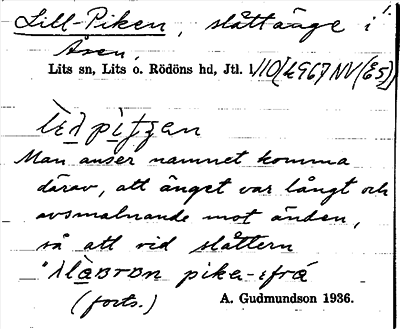 Lill-Piken, slåttänge i
Åsen,
Lits sn, Lits o. Rödöns hd, Jtl.
Man anser namnet komma
därav, att änget var långt och
avsmalnande mot änden,
så att vid slåttern
pika-ifrå
(forts.) A. Gudmundson 1936.